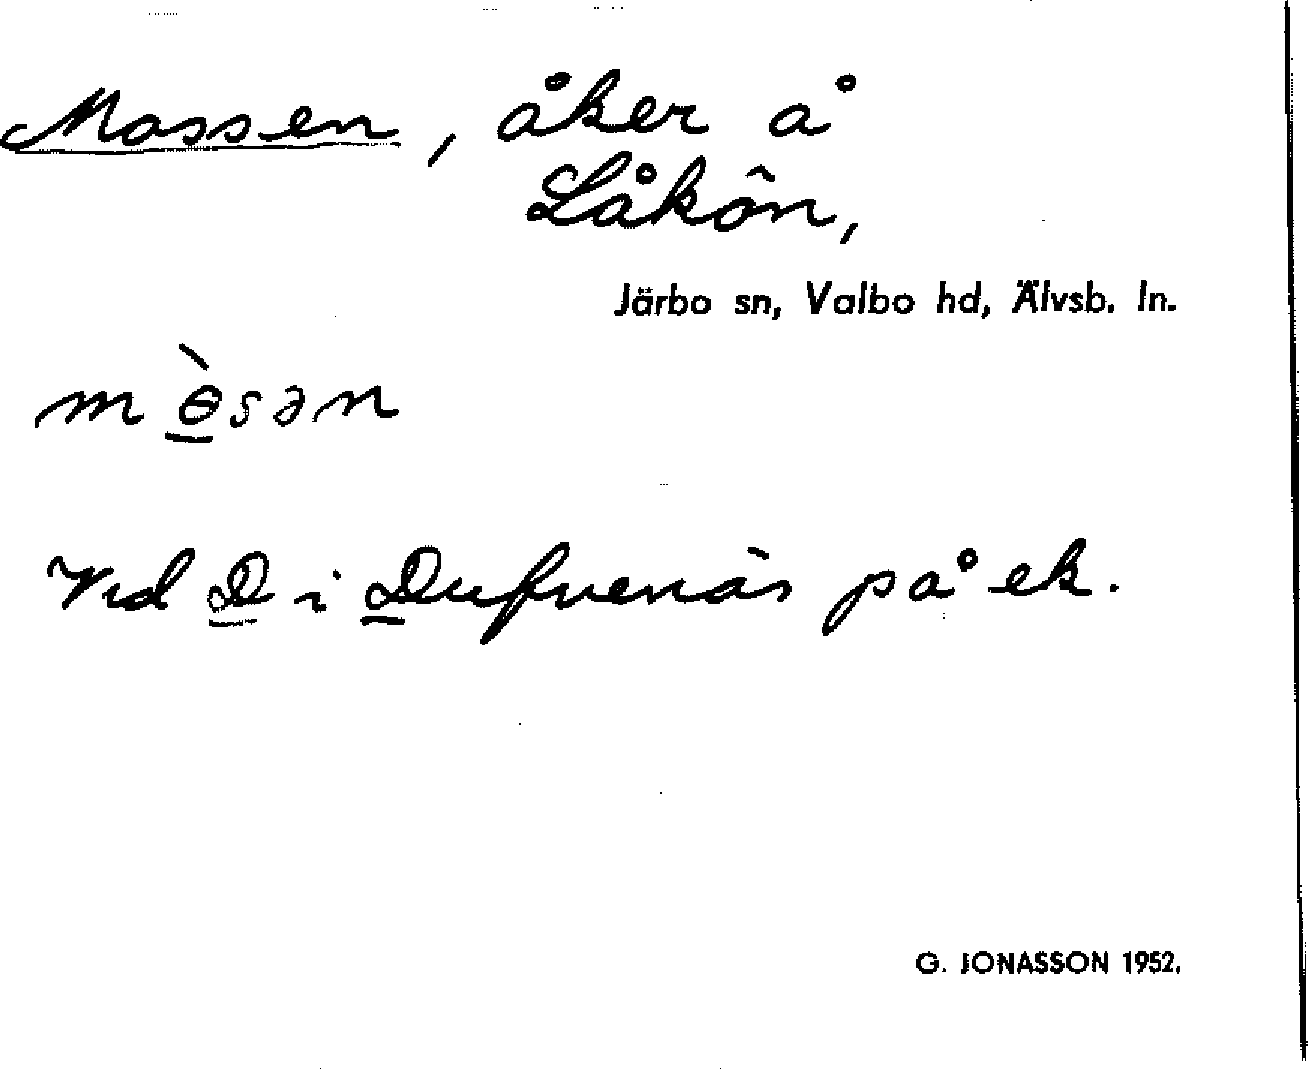 Mossen, åker å
Låkôn,
Järbo sn, Valbo hd, Älvsb. ln.
mɵ̀sən
Vid D i Dufvenäs på ek.
G. JONASSON 1952.